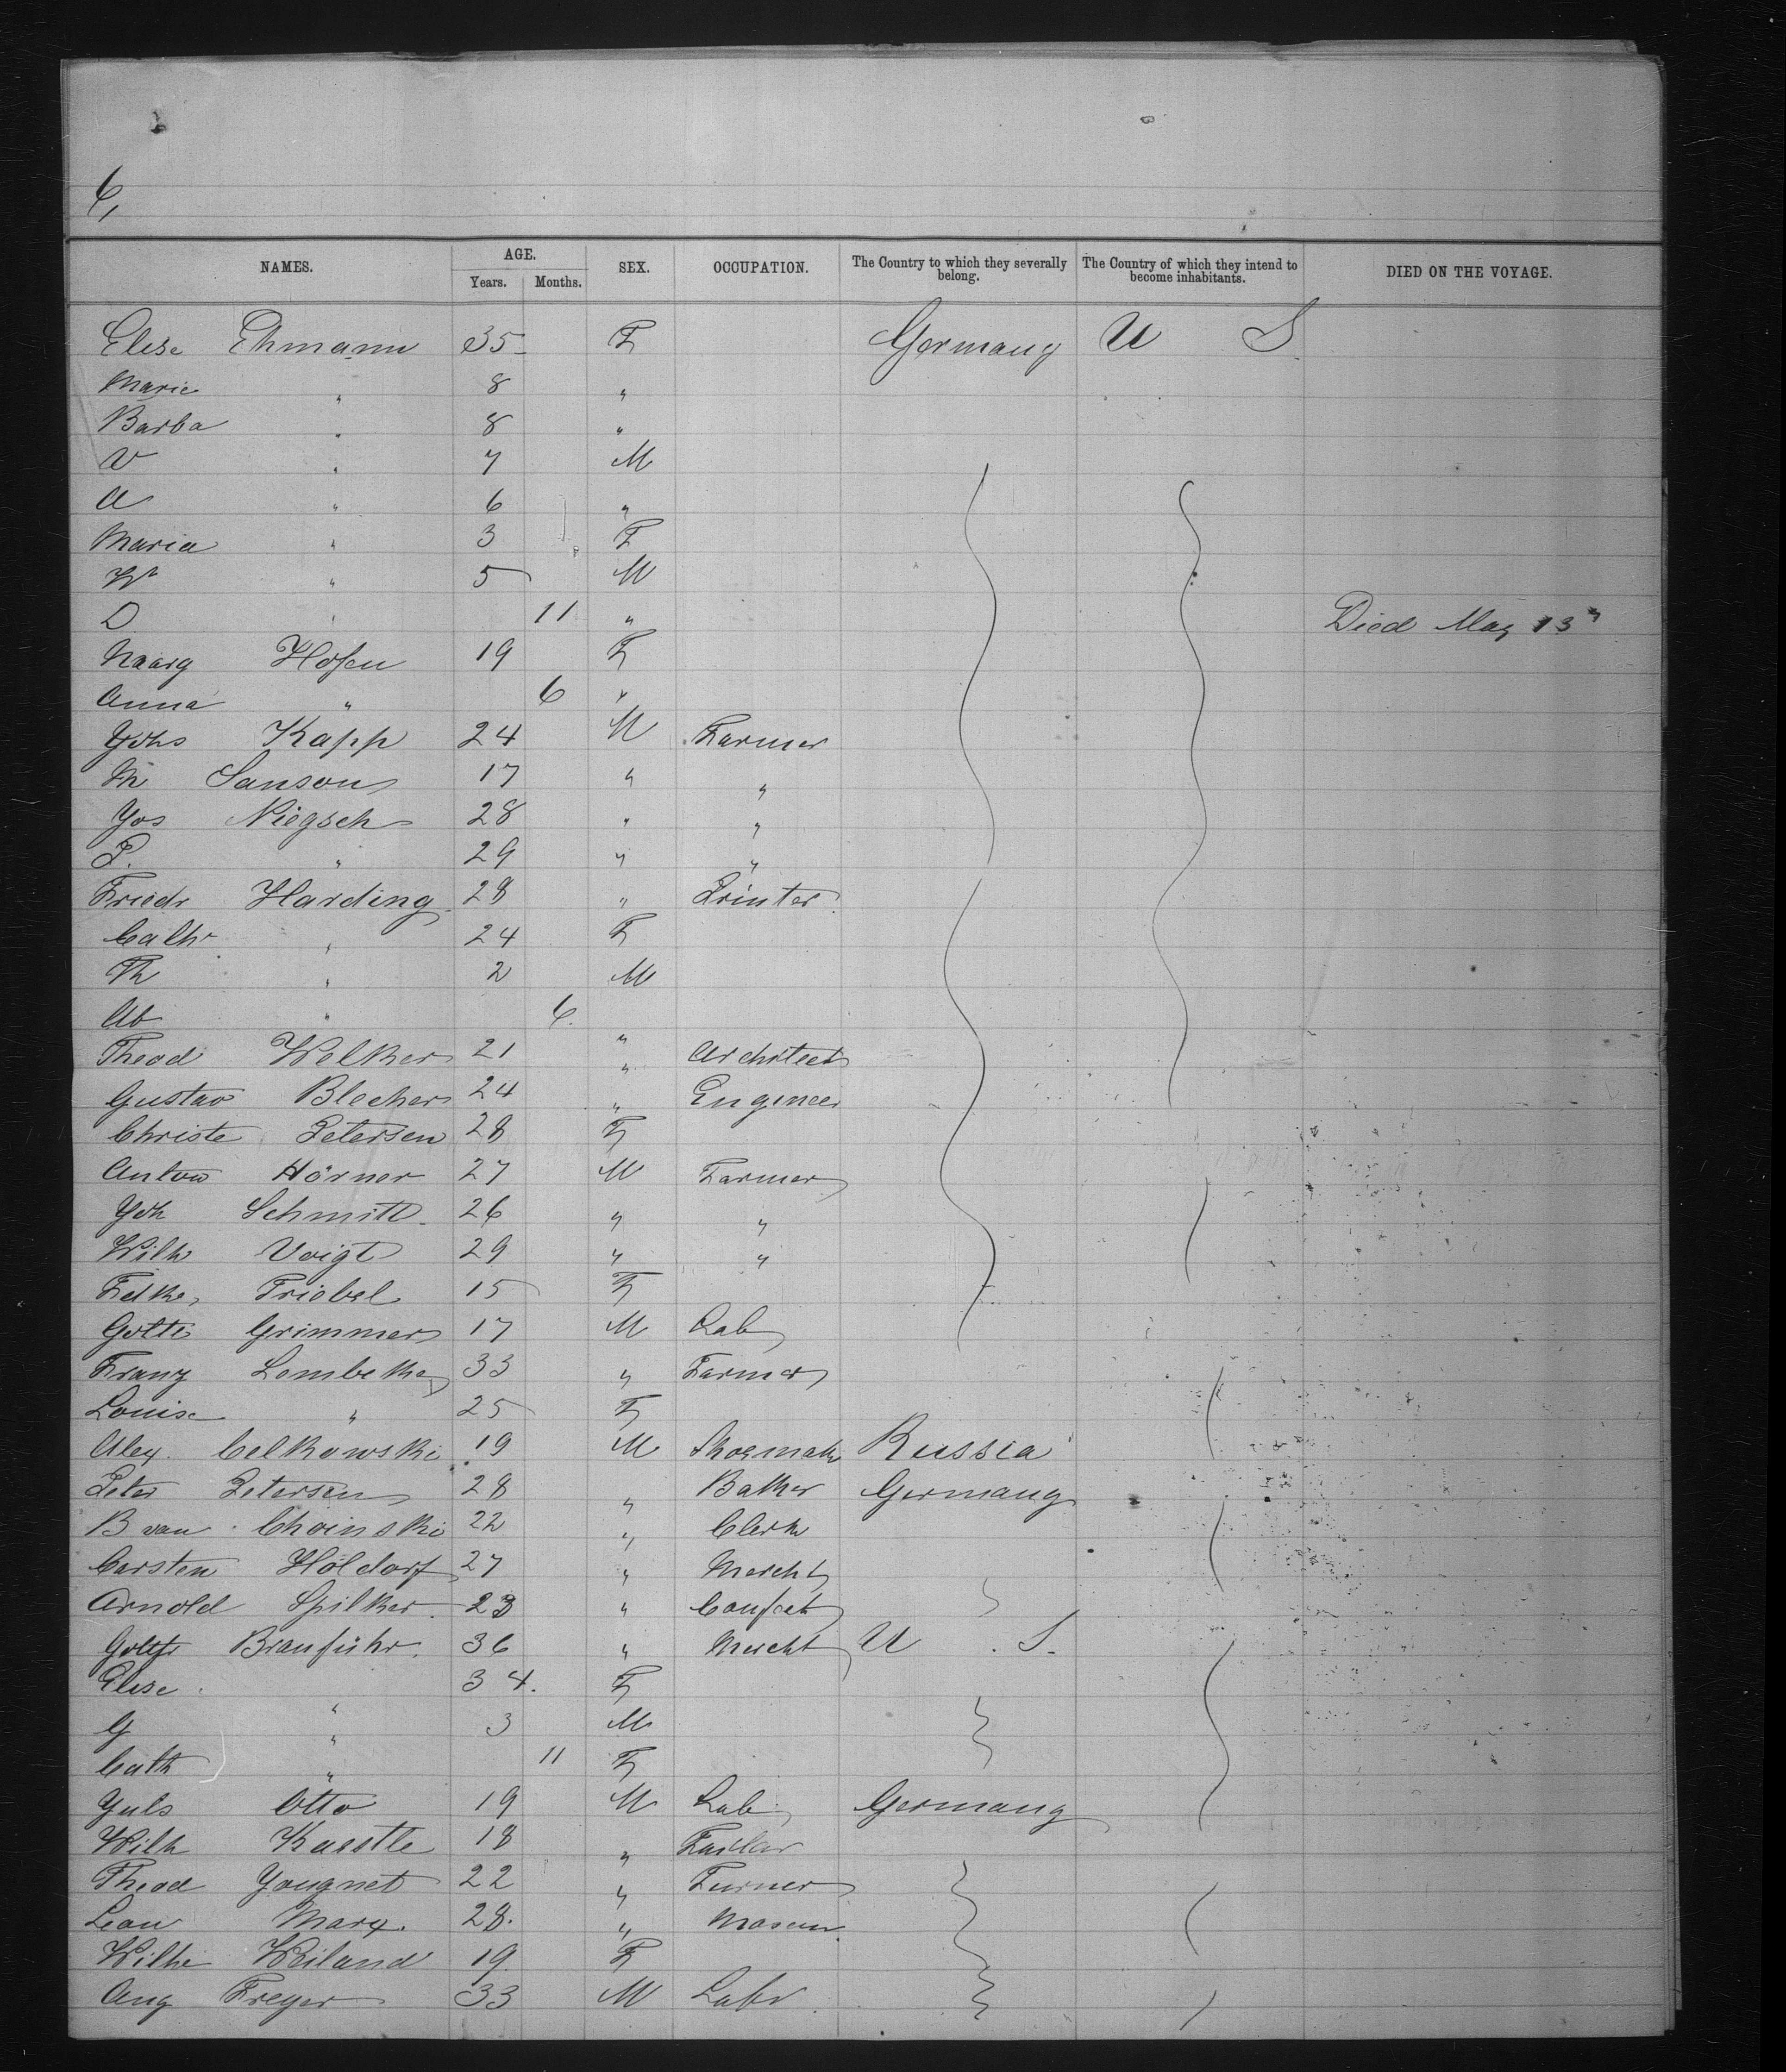 6,
NAMES. AGE. Years. Months. SEX. OCCUPATION. The Country to which they severally belong. The Country of which they intend to become inhabitants. DIED ON THE VOYAGE.
Elise Ehmann 35 F Germany U S.
Marie " 8 "
Barba " 8 "
V " 7 M
A " 6 "
Maria " 3 F
W " 5 M
D " 11 " Died May 13
Hofen 19 F
Anna " 6 "
Yohs Kapp 24 M Farmer
M Sanson 17 " "
Yos Niegsch 28 " "
P. " 29 " "
Friedr Harding 28 " Printer
Cathr " 24 F
Th " 2 M
Ab " 6. "
Theod Welker 21 " Architect
Gustav Blecher 24 " Engineer
Christe Petersen 28 F
Anton Hörner 27 M Farmer
Yoh Schmitt 26 " "
Wilh Voigt 29 " "
Triebel 15 F
Gottl Grimmer 17 M Lab
Franz Lembcke 33 " Farmer
Louise " 25 F
Alex. Celkowski 19 M Shoemak Russia
Peter Petersen 28 " Baker Germany
B van Choinski 22 " Clerk
Carsten Holdorf 27 " Mercht
Arnold Spilker 23 " Confect
Gottfr Branführ. 36 " Mercht U. S.
Elise " 34. F
G " 3 M
Cath " 11 F
Yuls Otto 19 M Lab Germany
Wilh Kasstle 18 " Tailor
Theod Yougnet 22 " Turner
Leon Marx. 28. " Mason
Wilhe Weiland 19. F
Aug Freyer 33 M Labr